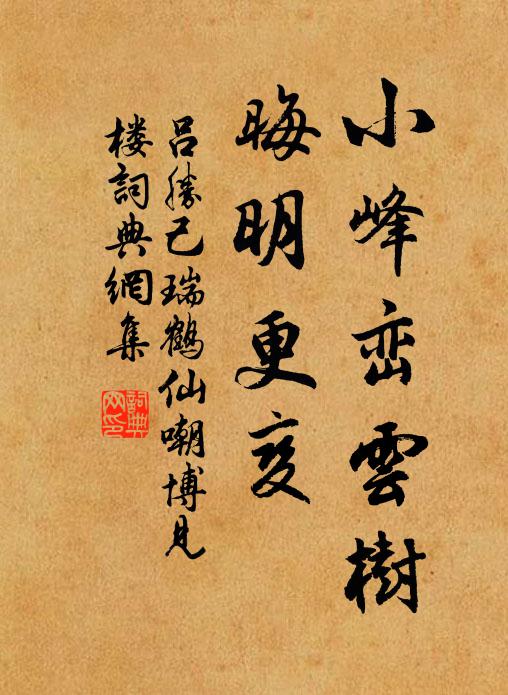 小峰峦雲樹
晦明更变
吕勝己瑞鶴仙嘲博見
楼詞典網集
詞典网印